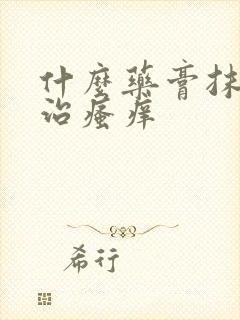 什麼藥膏抹
治瘙痒
希行